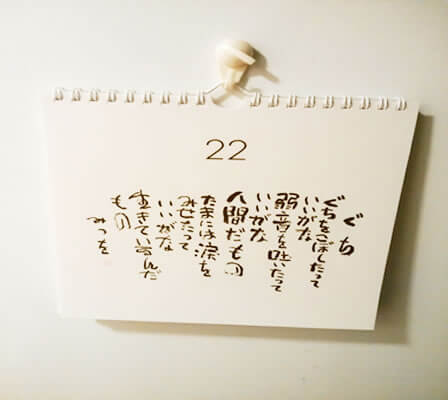 22
ぐち
ぐちをこぼしたって
いいがな
弱音を吐いたって
いいがな
人間だもの
たまには涙を
みせたって
いいがな
生きているんだ
もの
みつを